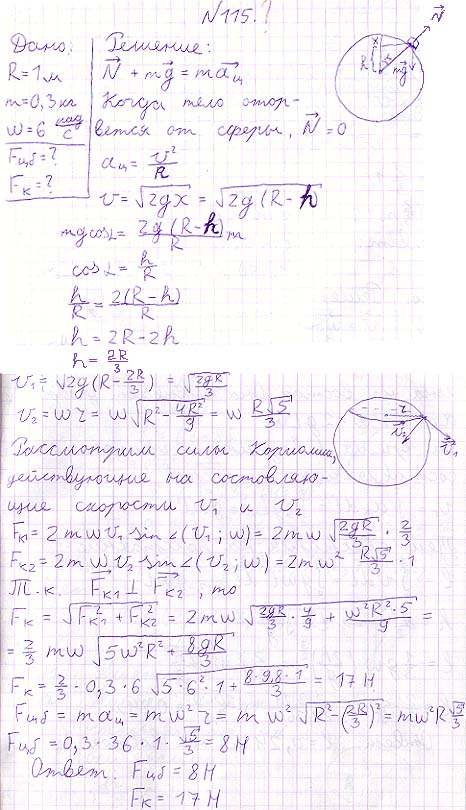 N 115. ?
Дано:
R = 1 м
m = 0,3 кг
w = 6 рад/с
Fцб = ?
Fк = ?
Решение:
N + mg = maц
Когда тело оторвется от сферы, N = 0
aц = v²/R
v = √2gx = √2g(R-h)
mg cosα = 2g(R-h)/R m
cosα = h/R
h/R = 2(R-h)/R
h = 2R - 2h
h = 2R/3
N
x
R
α
mg
v₁ = √2g(R - 2R/3) = √2gR/3
v₂ = wr = w√R² - 4R²/9 = w R√5/3
r
v₂
v₁
Рассмотрим силы Кориолиса,
действующие на составляю-
щие скорости v₁ и v₂
Fк1 = 2mwv₁ sin∠(v₁; w) = 2mw √2gR/3 · 2/3
Fк2 = 2mwv₂ sin∠(v₂; w) = 2mw² R√5/3 · 1
Т.к. Fк1 ⊥ Fк2, то
Fк = √Fк1² + Fк2² = 2mw √2gR/3 · 4/9 + w²R²·5/9 =
= 2/3 mw √5w²R² + 8gR/3
Fк = 2/3 · 0,3 · 6 √5·6²·1 + 8·9,8·1/3 = 17 Н
Fцб = maц = mw²r = mw² √R² - (2R/3)² = mw²R √5/3
Fцб = 0,3 · 36 · 1 · √5/3 = 8 Н
Ответ: Fцб = 8 Н
Fк = 17 Н